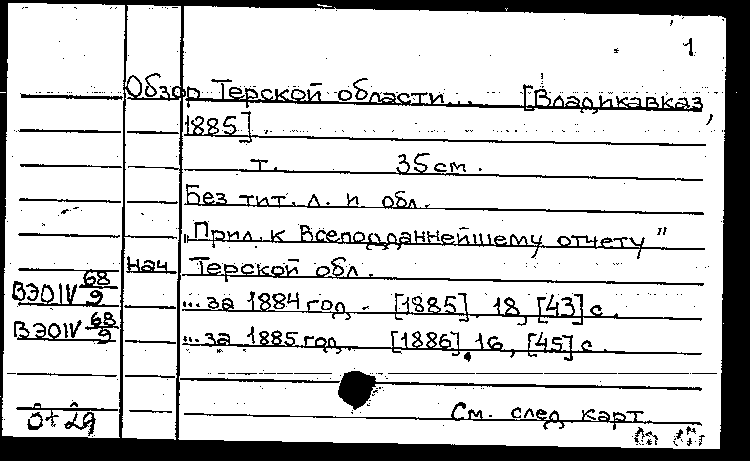 1
Обзор Терской области... [Владикавказ,
1885]
т. 35 см.
Без тит. л. и обл.
„Прил. к Всеподданнейшему отчету"
нач. Терской обл.
ВЭОIV 68/9 ...за 1884 год. - [1885]. 18, [43] с.
ВЭОIV 68/9 ...за 1885 год. - [1886]. 16, [45] с.
См. след. карт.